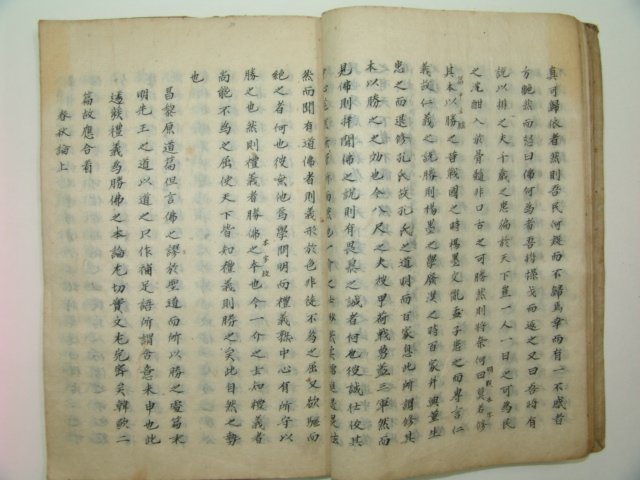 真可歸依者然則吾民何從而不歸焉幸而有一不惑者
方艴然而怒曰佛何為者吾將操戈而逐之又曰吾將有
說以排之夫千歲之患徧於天下豈一人一日之可為民
之沈酣入於骨髓非口舌之可勝然則將奈何曰莫若修
其本以勝之昔戰國之時楊墨交亂孟子患之而專言仁
義故仁義之說勝則楊墨之學廢漢之時百家並興董生
患之而退修孔氏故孔氏之道明而百家息此所謂修其
本以勝之之効也今八尺之夫被甲荷戟勇盖三軍然而
見佛則拜聞佛之說則有畏慕之誠者何也彼誠壯佼其
然而聞有道佛者則義形於色非徒不為之屈又欲驅而
絶之者何也彼無他焉學問明而禮義熟中心有所守以
勝之也然則禮義者勝佛之本也今一介之士知禮義者
尚能不為之屈使天下皆知禮義則勝之矣此自然之勢
也
昌黎原道篇但言佛之謬於聖道而所以勝之處篇末
明先王之道以道之只作補足語所謂含意未申也此
透發禮義為勝佛之本論尤切實文尤完
篇故應合看
春秋論上